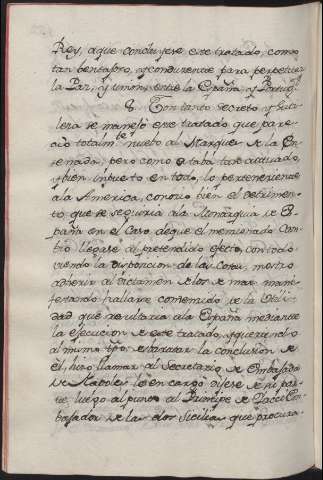 Rey, a que concluyese este tratado, como
tan bentajoso, y conducente para perpetuar
la Paz, y union, entre la España, y Portugal.
8. Con tanto secreto, y cau
tela se manejó este tratado, que pare
ció totalm.te nuebo al Marques de la En
senada, pero como estaba tan actuado,
y bien inpuesto en todo, lo perteneciente
a la America, conoció bien el detrimen
to que se seguiria a la Monarquia de Es
paña en el Caso, de que el mencionado Cam
bio llegase al pretendido efecto, con todo
viendo la disposicion de las Cosas, mostró
adherir al dictamen de los de mas mani
festando hallarse convencido de la Utili
dad que resultaria a la España mediante
la Execucion de este tratado, y queriendo
al mismo tpo. retardar la conclusion de
él, hizo llamar al Secretario de Embajada
de Napoles lo encargó dijese de su par
te luego al punto al Principe de Jacci Em
bajador de las dos Sicilias que procura